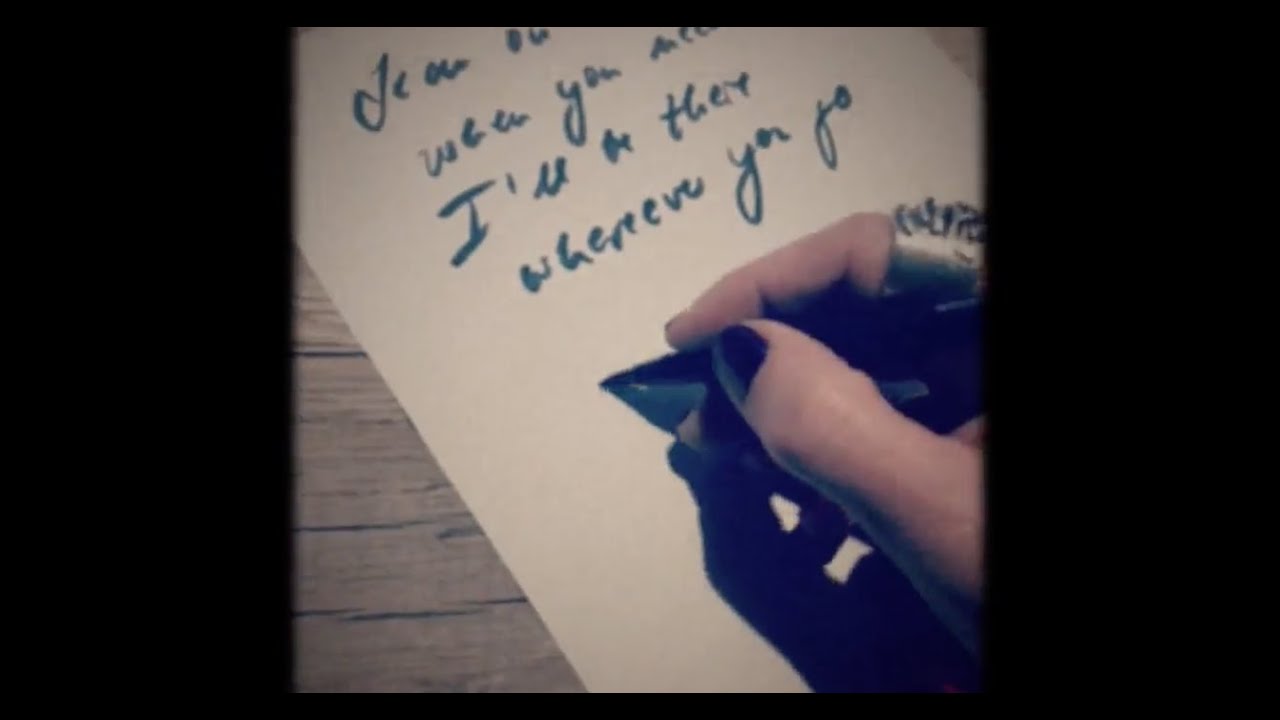 Lean on
when you need
I'll be there
whereever you go